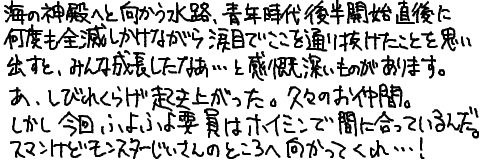 海の神殿へと向かう水路、青年時代後半開始直後に
何度も全滅しかけながら涙目でここを通り抜けたことを思い
出すと、みんな成長したなあ…と感慨深いものがあります。
あ、しびれくらげ起き上がった。久々のお仲間。
しかし今回ふよふよ要員はホイミンで間に合っているんだ。
スマンけどモンスターじいさんのところへ向かってくれ…!